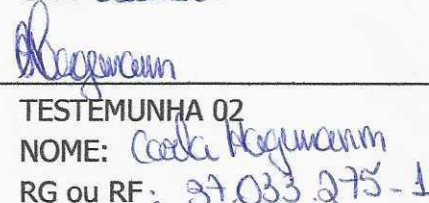 TESTEMUNHA 02
NOME: Carla Hagemann
RG ou RF: 37.033.275-1